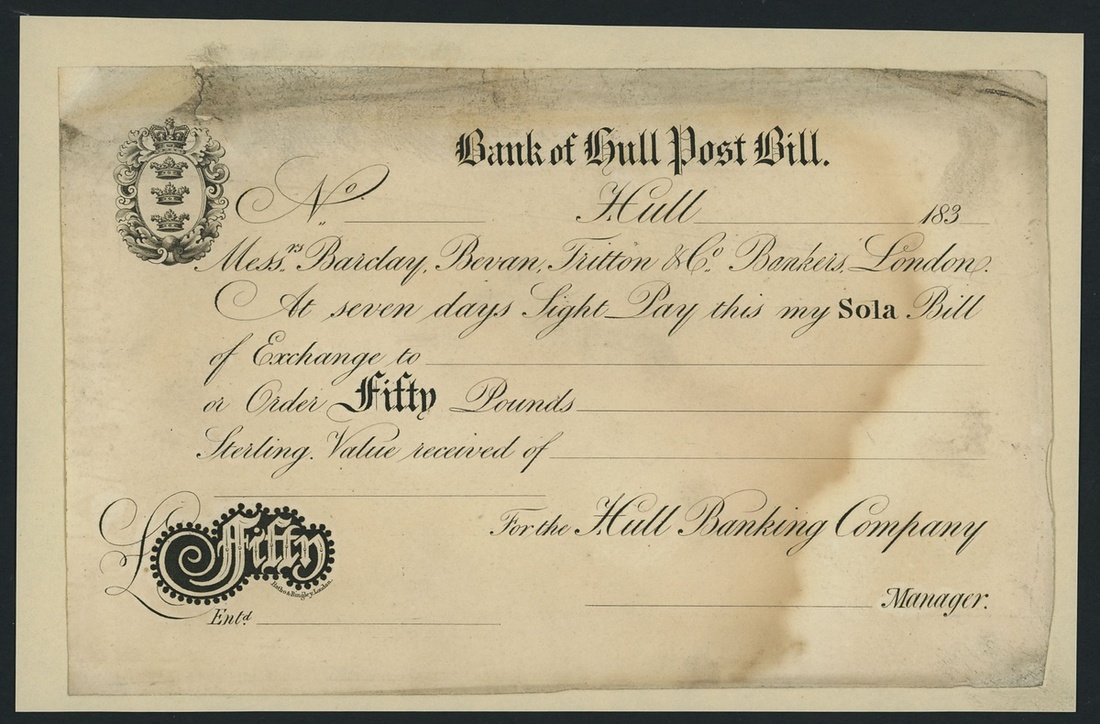 Bank of Hull Post Bill.
No. Hull 183
Messrs. Barclay, Bevan, Tritton & Co. Bankers, London.
At seven days Sight Pay this my Sola Bill
of Exchange to
or Order Fifty Pounds
Sterling. Value received of
For the Hull Banking Company
£ Fifty
Bingley, London.
Manager.
Entd.